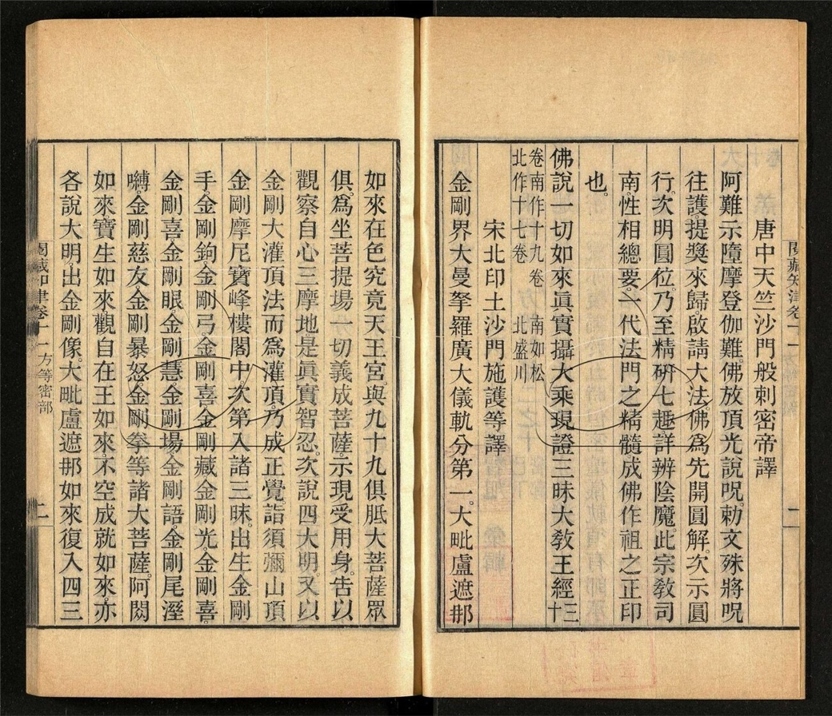 閱藏知津卷十一
二
唐中天竺沙門般剌密帝譯
阿難示墮摩登伽難。佛放頂光說呪。勅文殊將呪
往護。提獎來歸。啟請大法。佛爲先開圓解。次示圓
行。次明圓位。乃至精硏七趣。詳辨陰魔。此宗敎司
南。性相總要。一代法門之精髓。成佛作祖之正印
也。
佛說一切如來眞實攝大乘現證三昧大敎王經三十
卷南作十九卷 南如松
北作十七卷 北盛川
宋北印土沙門施護等譯
金剛界大曼拏羅廣大儀軌分第一。大毗盧遮那
如來在色究竟天王宮。與九十九俱胝大菩薩眾
俱。爲坐菩提場一切義成菩薩示現受用身。告以
觀察自心三摩地。是眞實智忍。次說四大明。又以
金剛大灌頂法而爲灌頂。乃成正覺。詣須彌山頂
金剛摩尼寶峰樓閣中。次第入諸三昧。出生金剛
手金剛鉤金剛弓金剛喜金剛藏金剛光金剛喜
金剛喜金剛眼金剛慧金剛場金剛語金剛尾濕
嚩金剛慈友金剛暴怒金剛拳等諸大菩薩。阿閦
如來寶生如來觀自在王如來不空成就如來亦
各說大明。出金剛像。大毗盧遮那如來復入四三
閱藏知津卷十一
方等密部
二